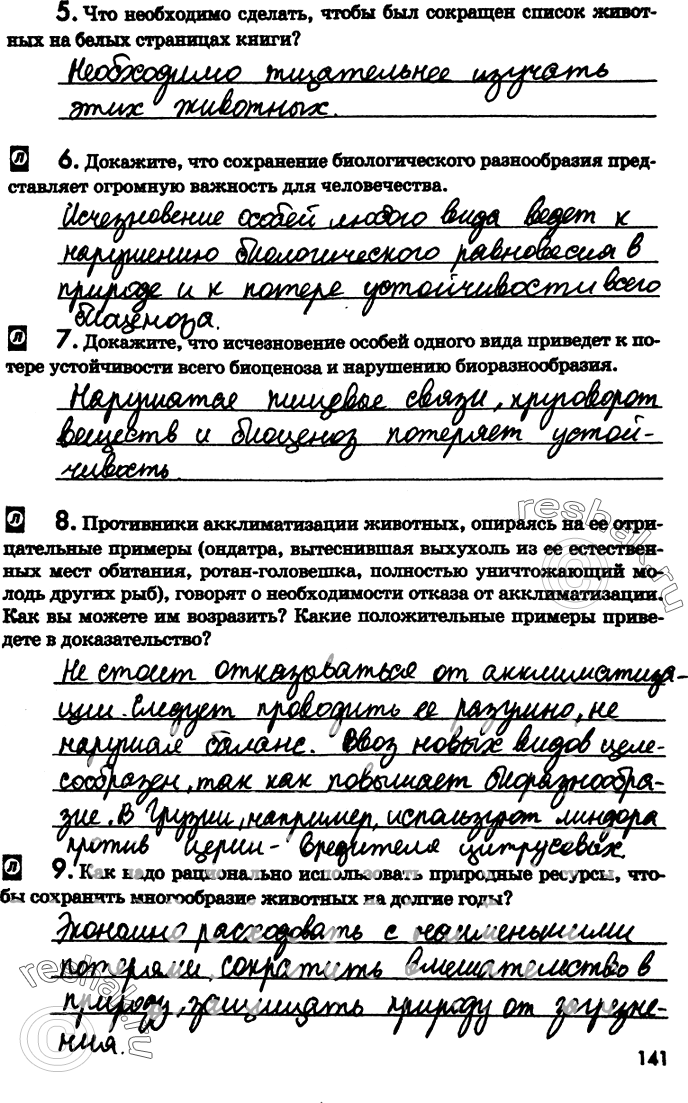 5. Что необходимо сделать, чтобы был сокращен список живот-
ных на белых страницах книги?
Необходимо тщательнее изучать
этих животных.
Л 6. Докажите, что сохранение биологического разнообразия пред-
ставляет огромную важность для человечества.
Исчезновение особей любого вида ведет к
нарушению биологического равновесия в
природе и к потере устойчивости всего
биоценоза.
Л 7. Докажите, что исчезновение особей одного вида приведет к по-
тере устойчивости всего биоценоза и нарушению биоразнообразия.
Нарушатся пищевые связи, круговорот
веществ и биоценоз потеряет устой-
чивость.
Л 8. Противники акклиматизации животных, опираясь на ее отри-
цательные примеры (ондатра, вытеснившая выхухоль из ее естествен-
ных мест обитания, ротан-головешка, полностью уничтожающий мо-
лодь других рыб), говорят о необходимости отказа от акклиматизации.
Как вы можете им возразить? Какие положительные примеры приве-
дете в доказательство?
Не стоит отказываться от акклиматиза-
ции. Следует проводить ее разумно, не
нарушая баланс. Ввоз новых видов целе-
сообразен, так как повышает биоразнообра-
зие. В Грузии, например, используют линдора
против церии - вредителя цитрусовых.
Л 9. Как надо рационально использовать природные ресурсы, что-
бы сохранить многообразие животных на долгие годы?
Экономно расходовать с наименьшими
потерями, сократить вмешательство в
природу, защищать природу от загрязне-
ния.
141
reshak.ru
reshak.ru